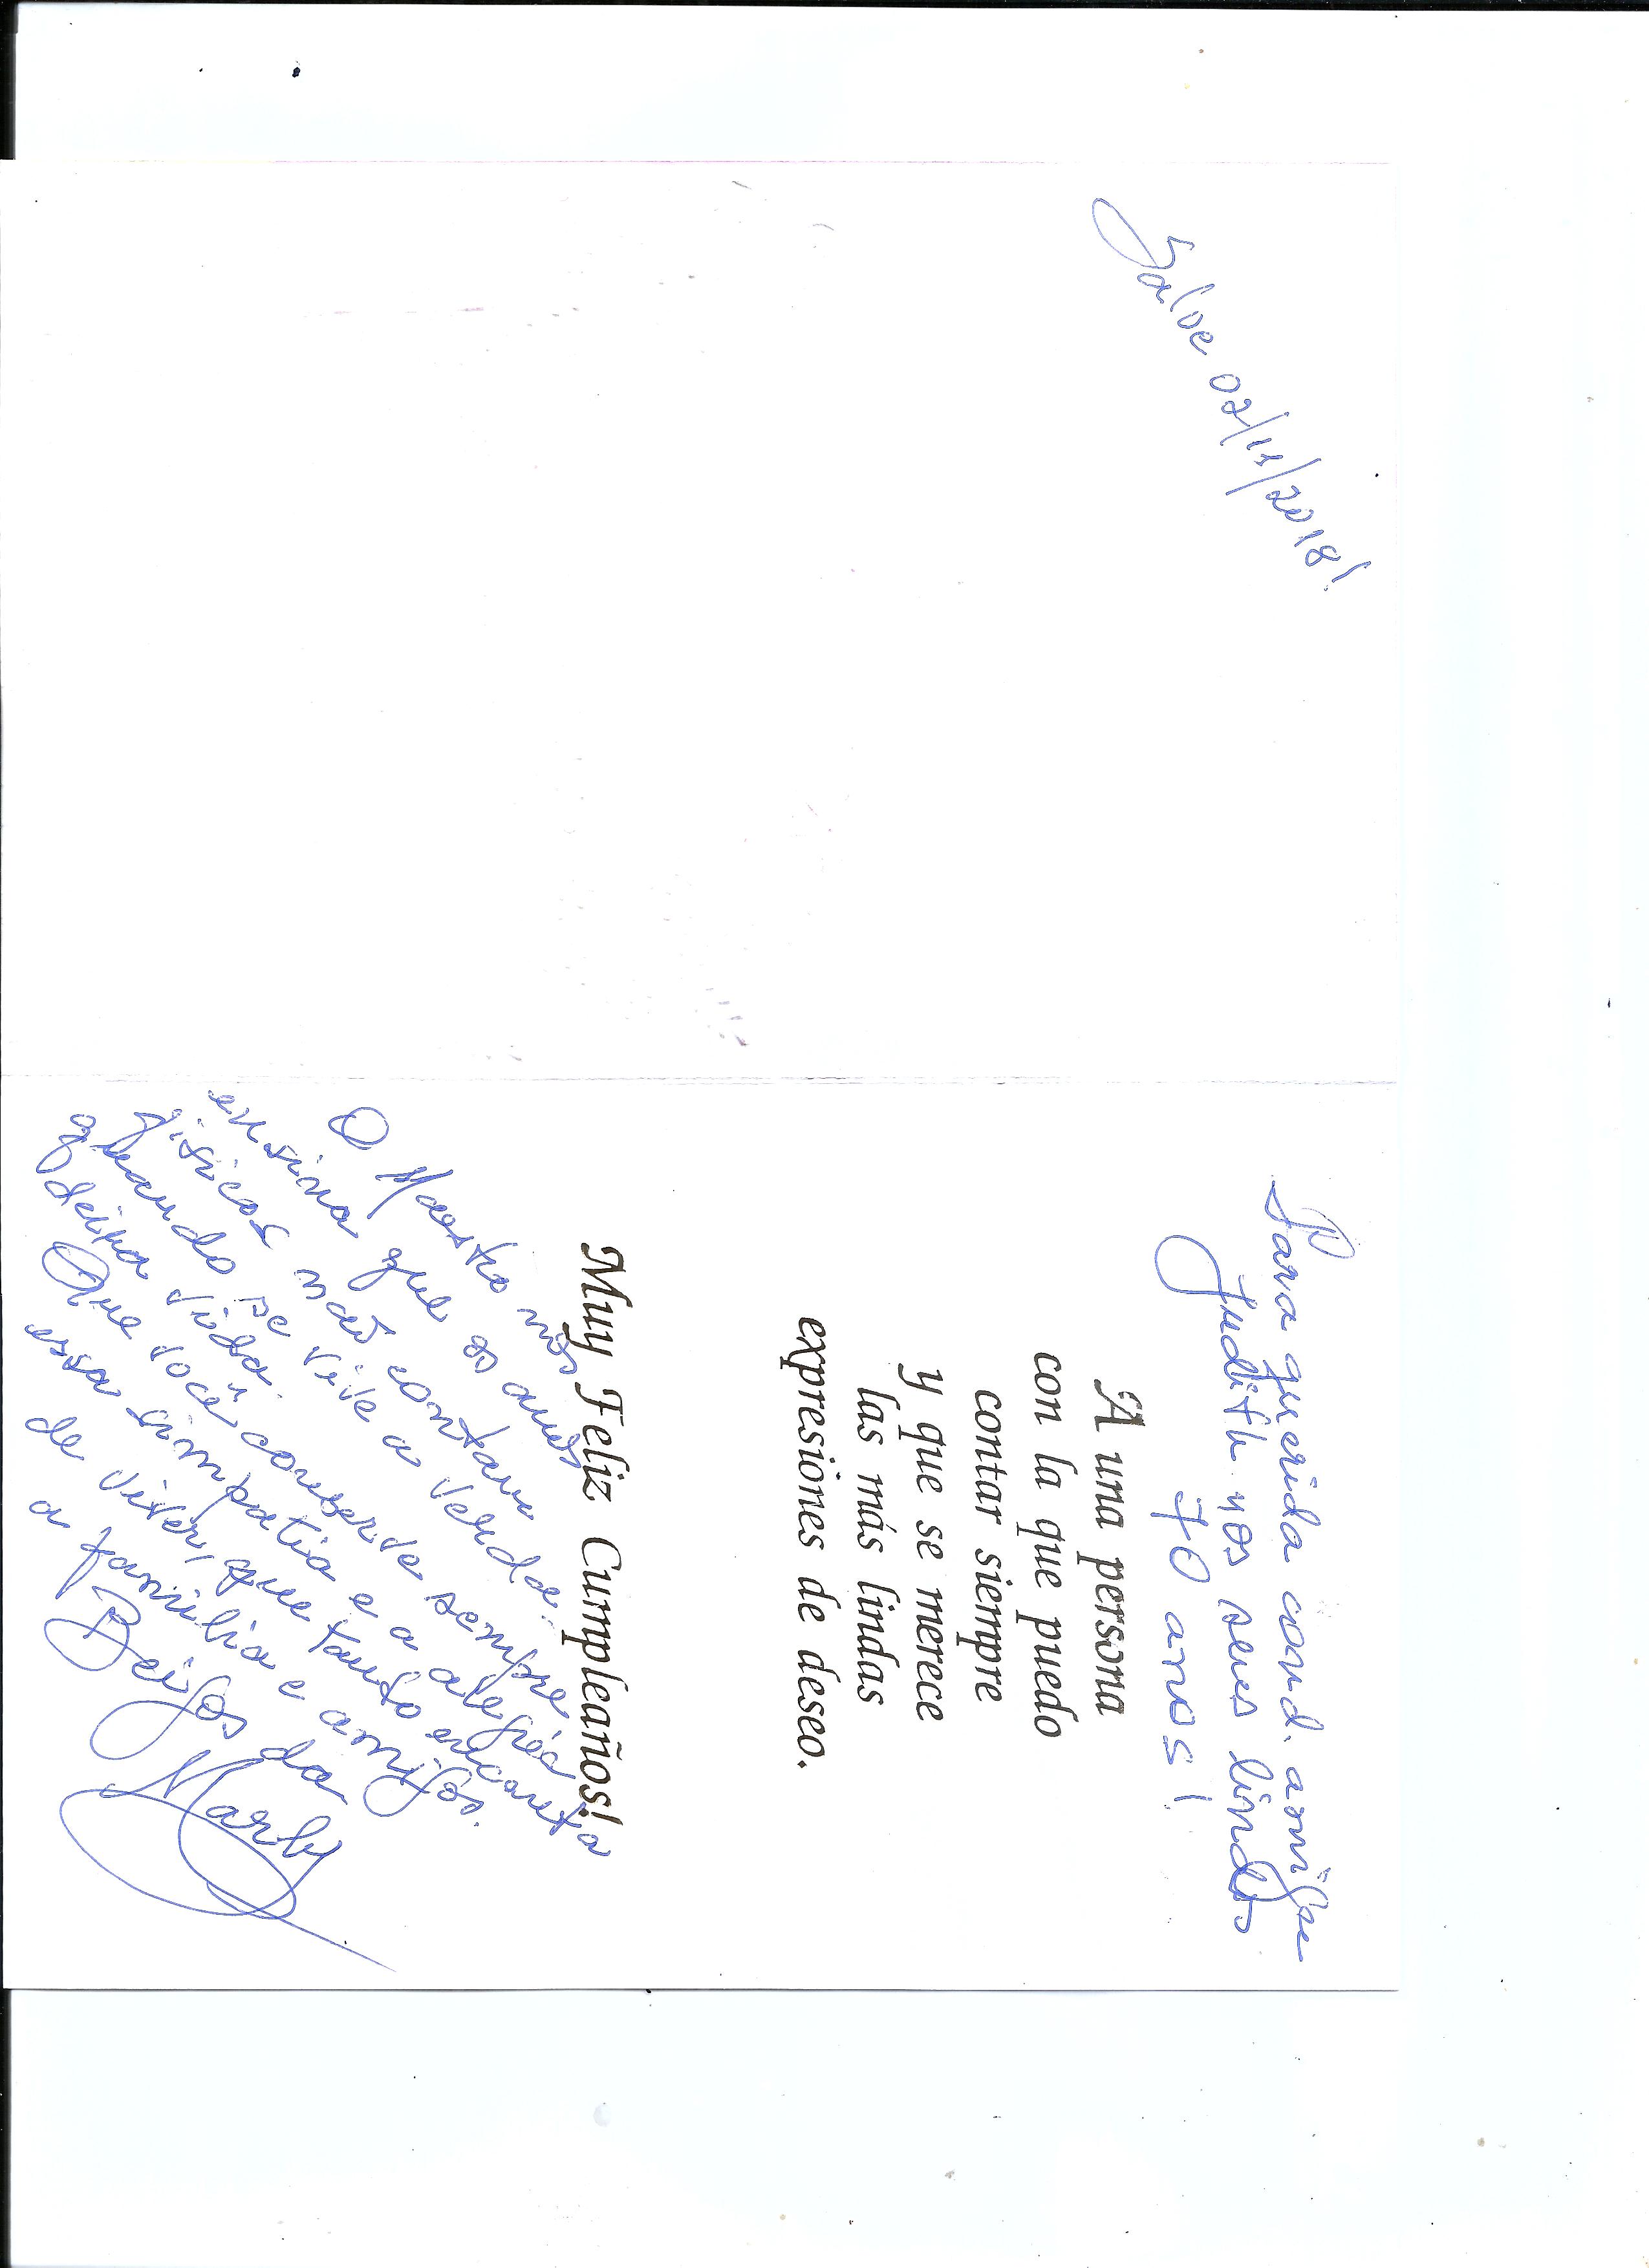 Salve 02/11/2018!
Para querida cond. amiga
Judith nos seus lindos
70 anos!
A una persona
con la que puedo
contar siempre
y que se merece
las más lindas
expresiones de deseo.
Muy Feliz Cumpleaños!
O Maestro nos
ensina que os anos
físicos não contam
quando se vive a verda-
deira vida.
Que você conserve sempre
essa simpatia e a alegria
de viver, que tanto encanta
a família e amigos.
Beijos da
Marly